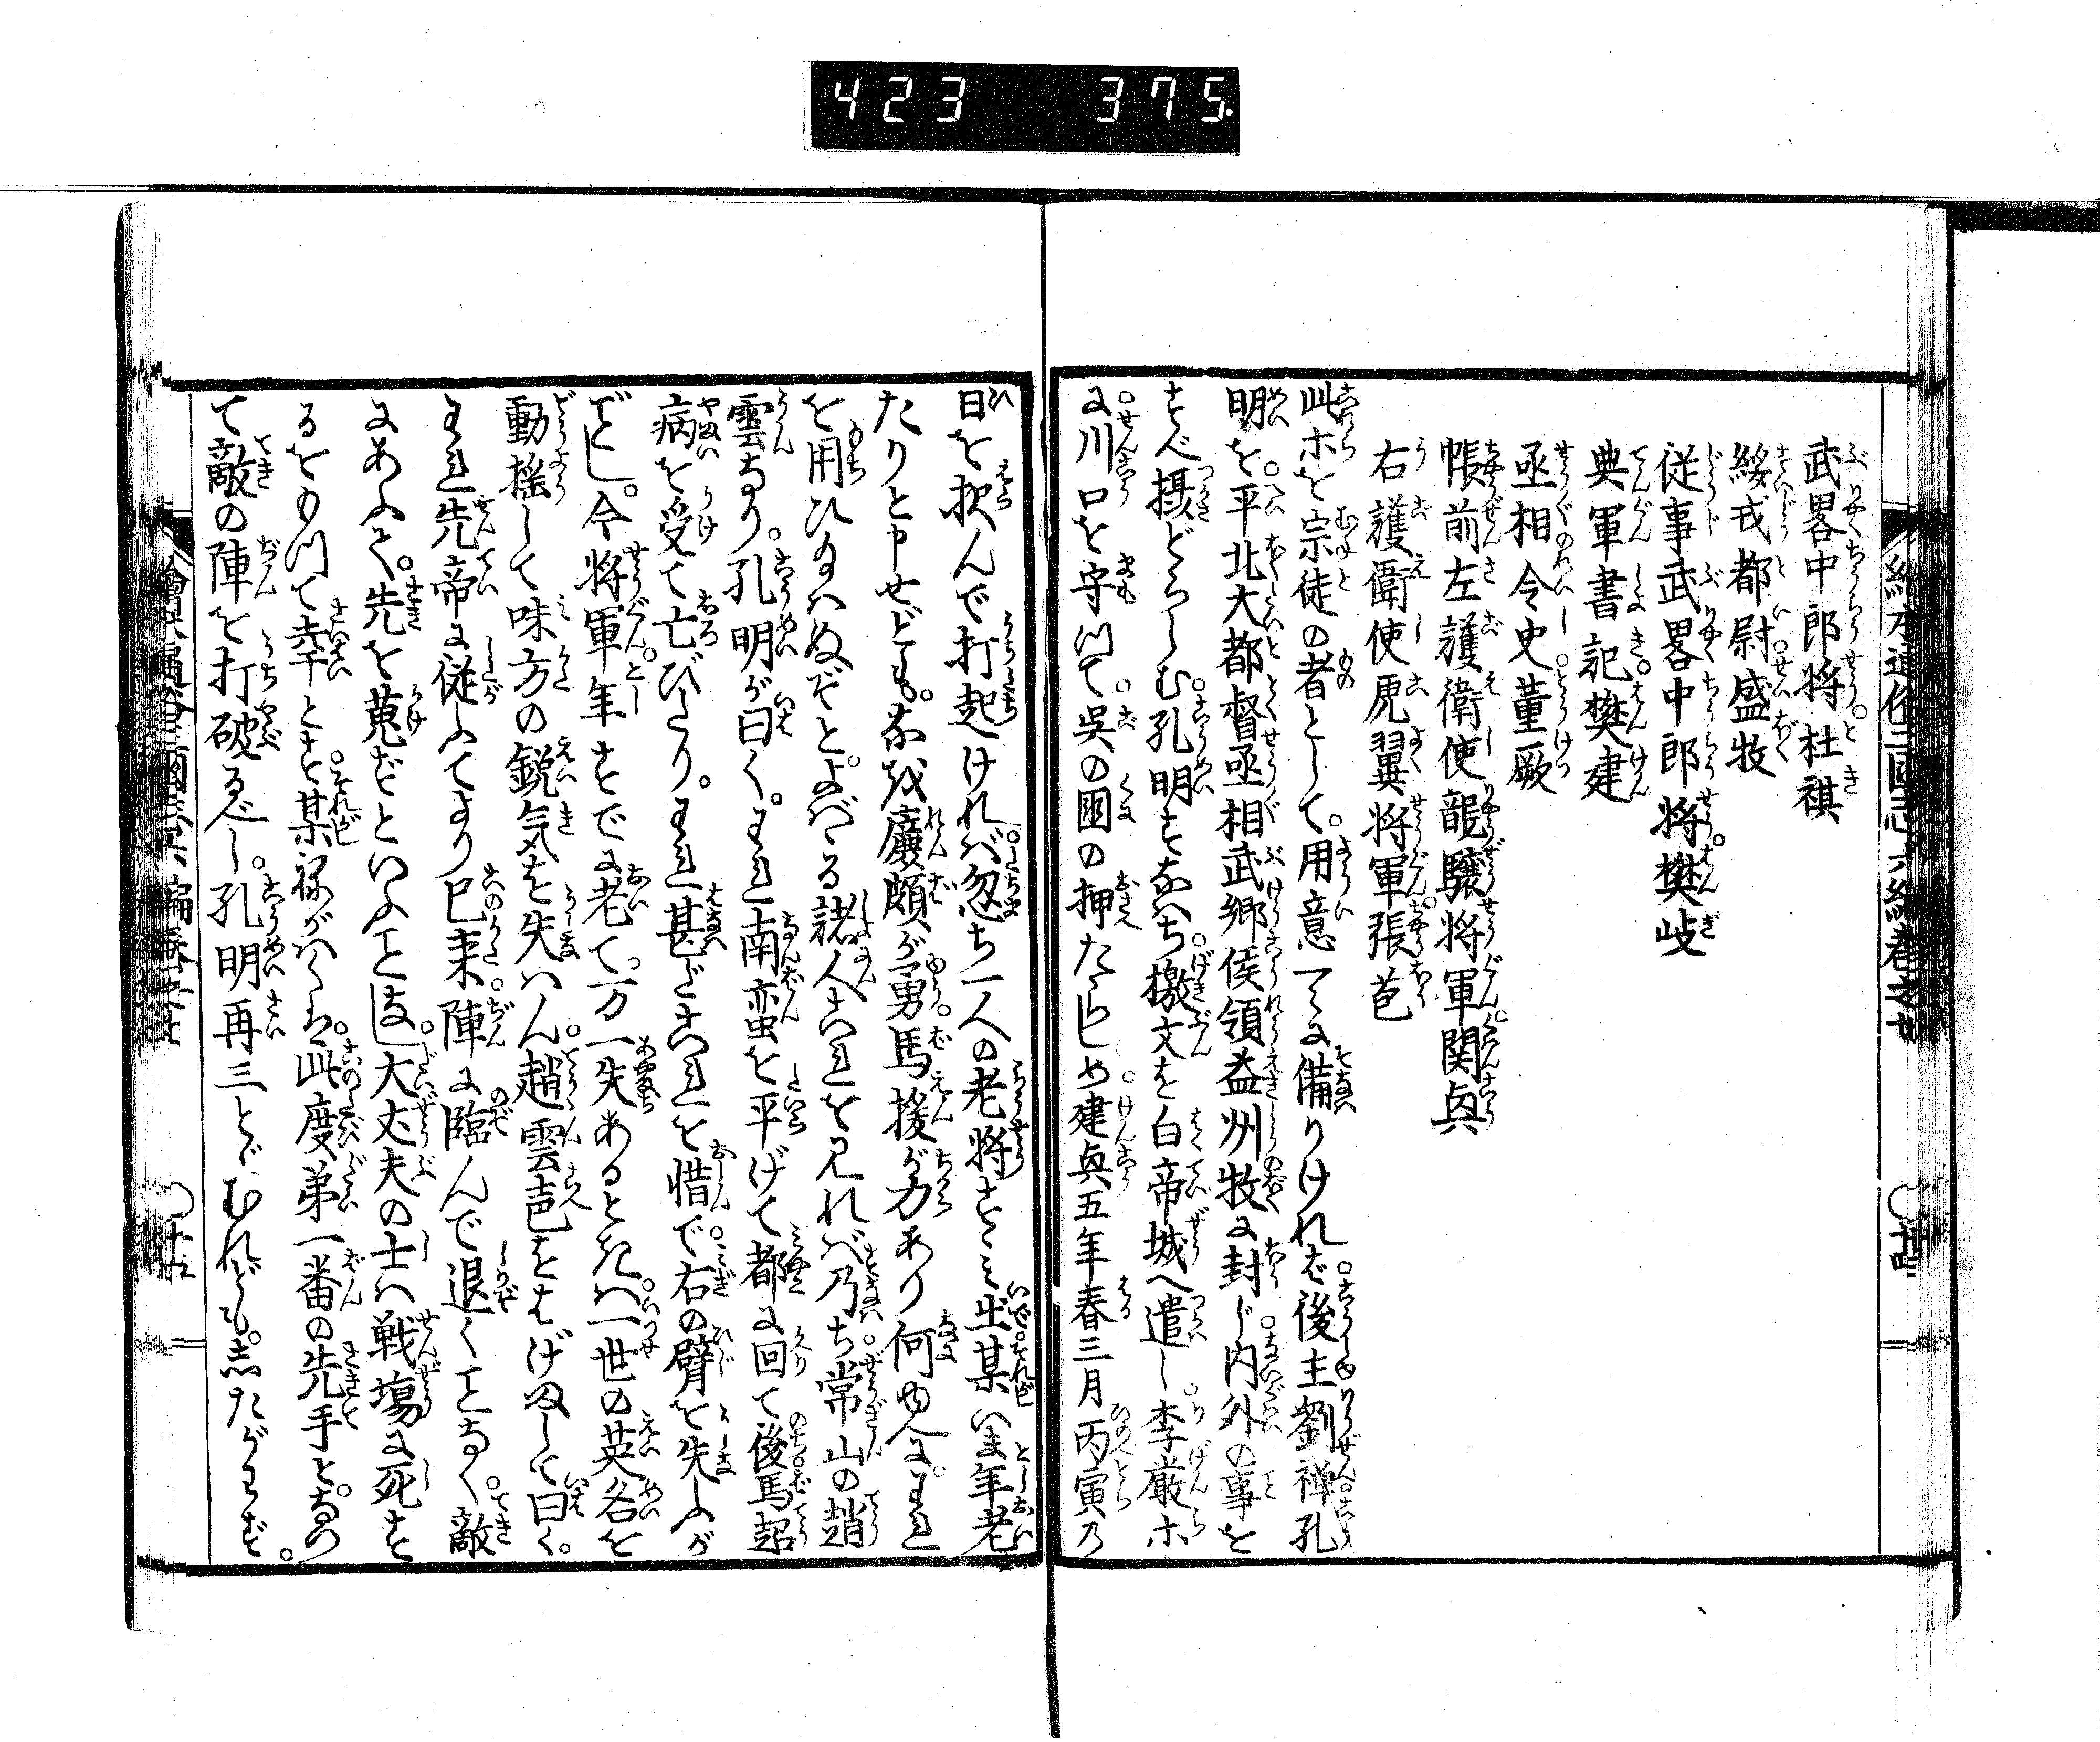 423 375
武畧中郎将杜祺
綏戎都尉盛牧
従事武畧中郎将樊岐
典軍書記樊建
丞相令史董厥
帳前左護衛使龍驤将軍関興
右護衛使虎翼将軍張苞
此ホを宗徒の者として。用意一々に備りけれど後主劉禅孔
明を平北大都督丞相武郷侯領益州牧に封じ内外の事を
すべ摂どらしむ孔明すなはち檄文を白帝城へ遣し李厳ホ
に川口を守つて呉の国の押たらしめ建興五年春三月丙寅乃
日を択んで打起ければ忽ち一人の老将すゝみ出某いま年老
たりと申せども。なほ廉頗が勇馬援が力あり何ゆへにわれ
を用ひ給はぬぞとよばゝる諸人これを見れば乃ち常山の趙
雲なり。孔明が曰く。われ南蛮を平げて都に回て後馬超
病を受て亡びたり。われ甚だこれを惜で右の臂を失ふが
ごとし。今将軍年すでに老て万一失あるときは一世の英名を
動揺して味方の鋭気を失はん趙雲声をあげ*して曰く。
われ先帝に従ふてより已来陣に臨んで退くことなく。敵
にあふて。先を蒐ずといふことなし。大丈夫の士は戦場に死す
るをもつて幸とす某禄がはくは。此度第一番の先手と。なつ
て敵の陣を打破るべし。孔明再三とゞむれども。したがはず。